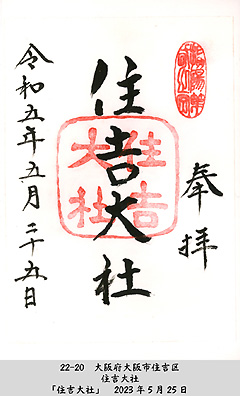 奉拝
住吉大社
令和五年五月二十五日
住吉大社
22-20 大阪府大阪市住吉区
住吉大社
「住吉大社」 2023年5月25日